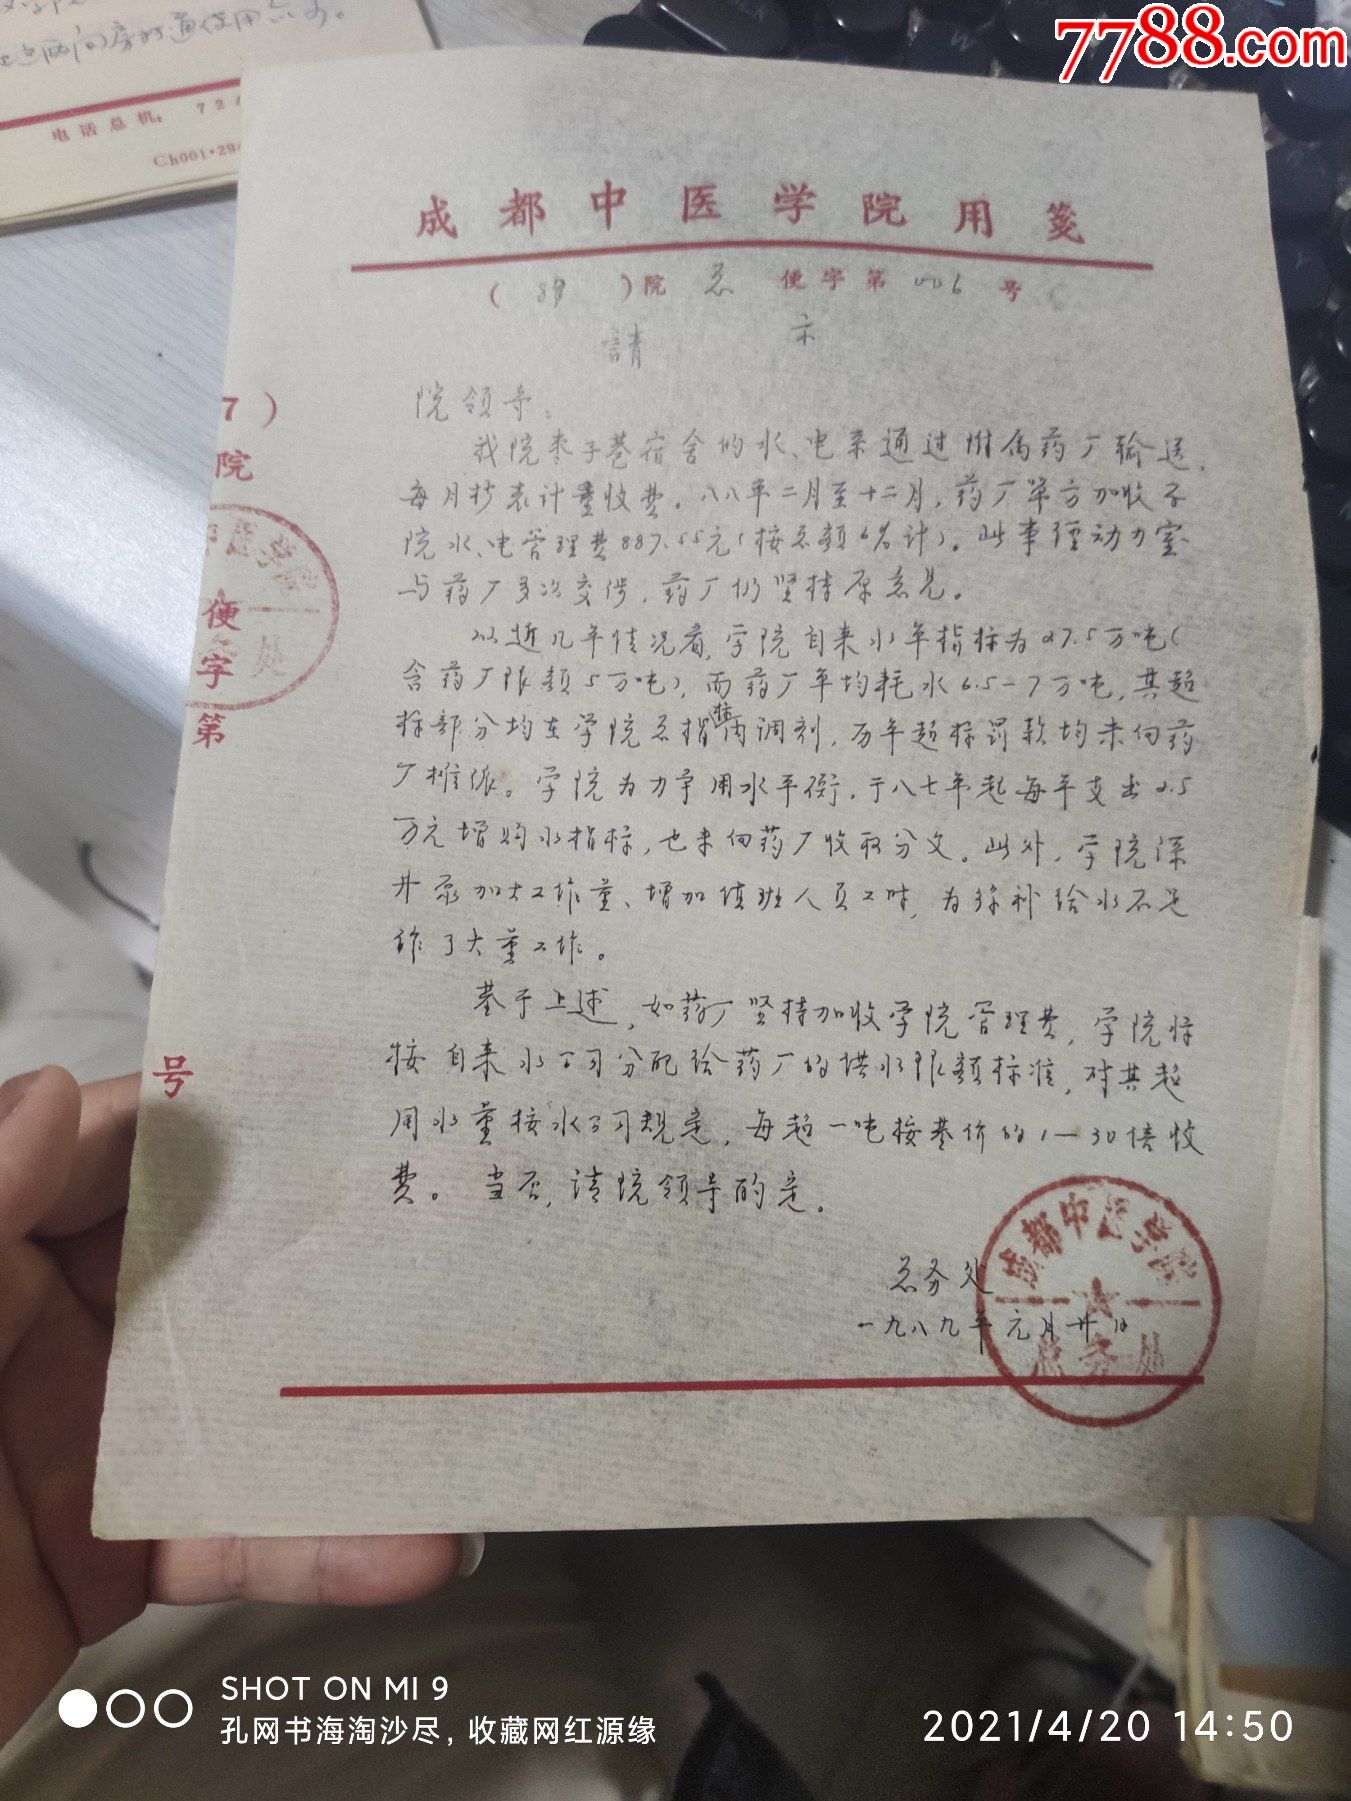 7788.com
上两间房
电话总机:72
Ch001·29
成都中医学院用笺
(89)院总便字第006号
請示
院领导:
我院枣子巷宿舍的水、电系通过附属药厂输送,
每月抄表计量收费。八八年二月至十二月,药厂单方加收了
院水、电管理费887.55元(按总额6%计)。此事经动力室
与药厂多次交涉,药厂仍坚持原意见。
从近几年情况看,学院自来水年指标为27.5万吨(
含药厂限额5万吨),而药厂年均耗水6.5-7万吨,其超
标部分均在学院总指标内调剂,历年超标罚款均未向药
厂摊派。学院为力争用水平衡,于八七年起每年支出2.5
万元增购水指标,也未向药厂收取分文。此外,学院深
井泵加大工作量、增加值班人员工时,为弥补给水不足
作了大量工作。
基于上述,如药厂坚持加收学院管理费,学院将
按自来水公司分配给药厂的供水限额标准,对其超
用水量按水公司规定,每超一吨按基价的1—30倍收
费。当否,请院领导酌定。
总务处
一九八九年元月廿日
成都中医学院
总务处
7)
院
便
字
第
号
SHOT ON MI 9
孔网书海淘沙尽,收藏网红源缘
2021/4/20 14:50